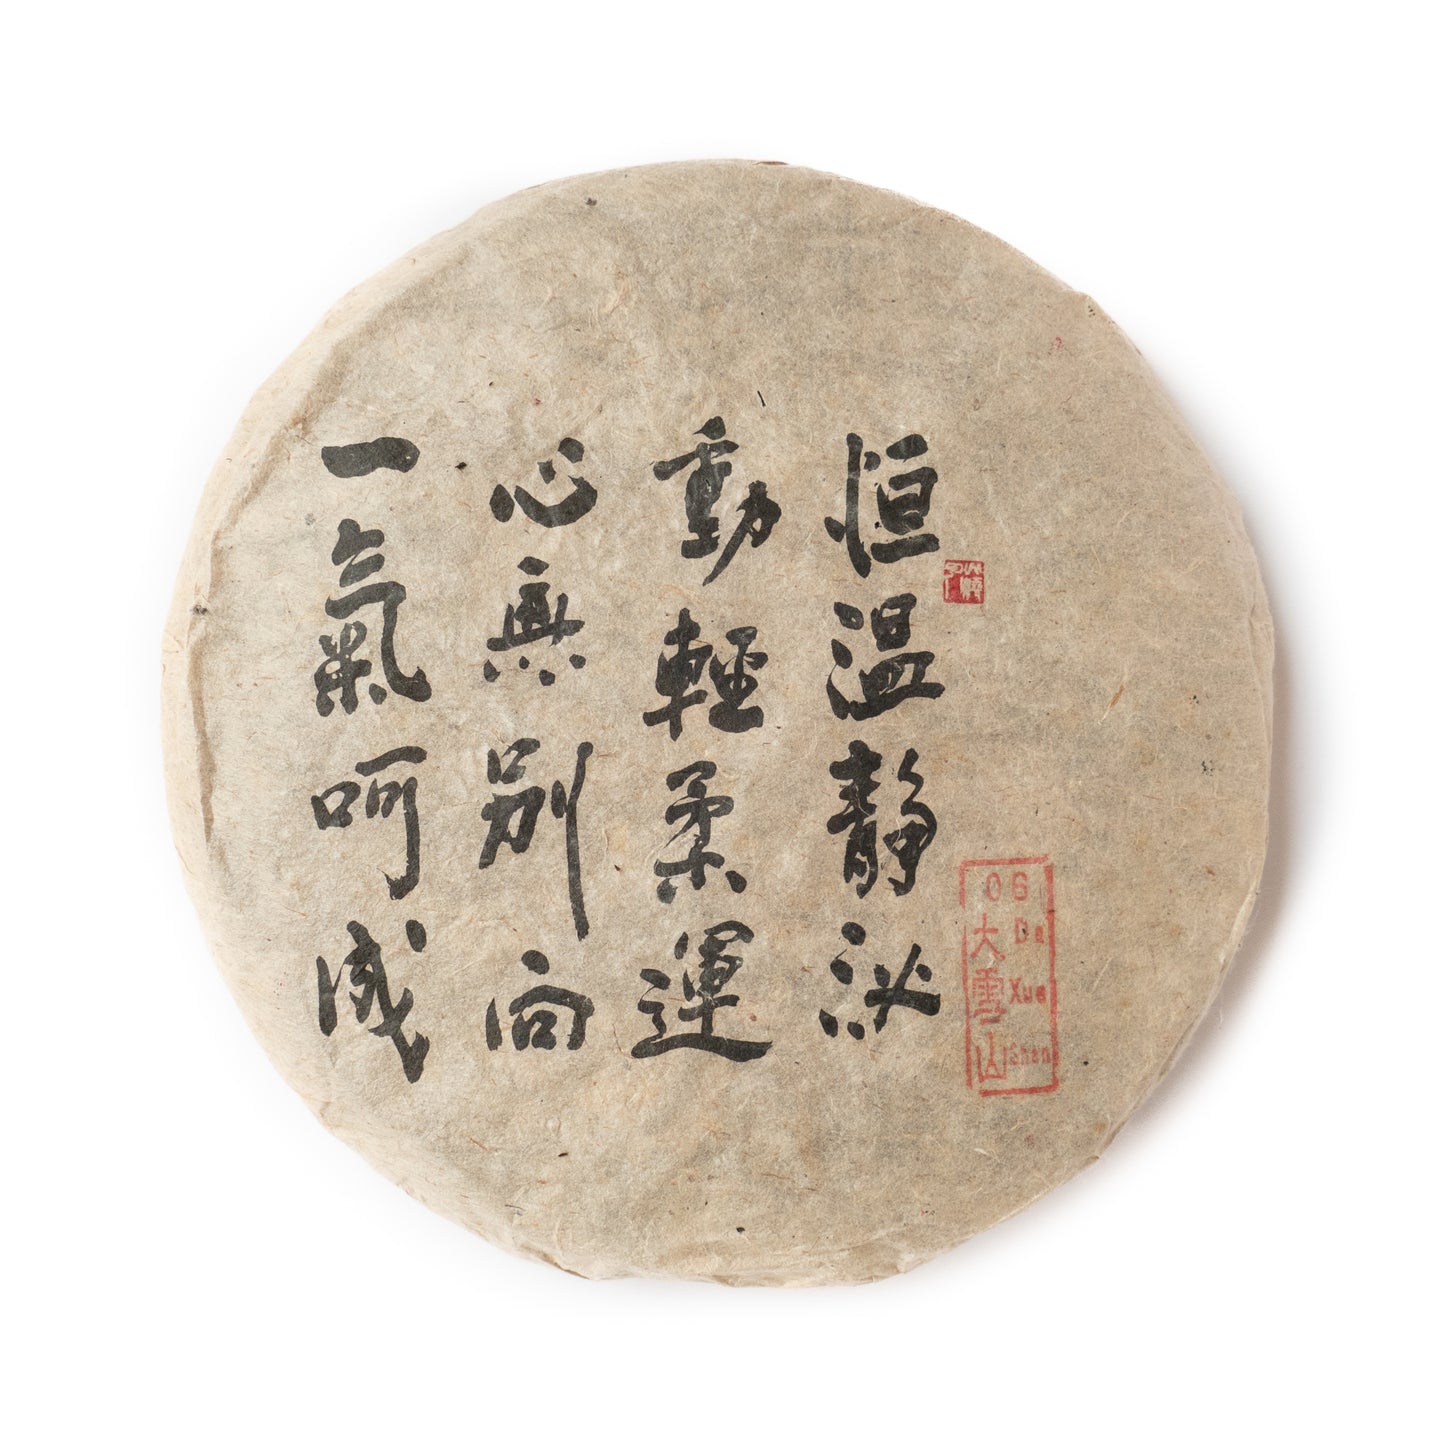 恒温靜泌
動輕柔運
心無别向
一氣呵成
06
大雪山
Da
Xue
Shan